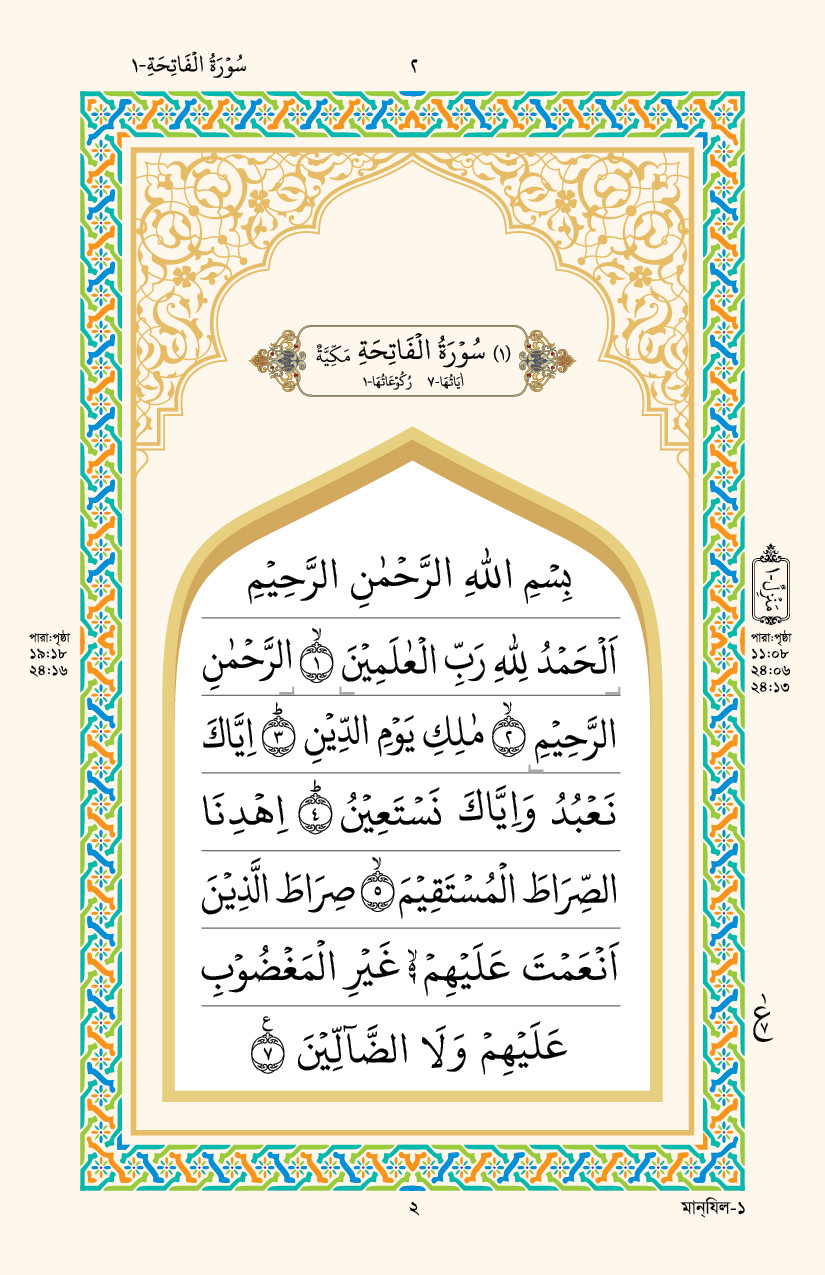 سُوْرَةُ الْفَاتِحَةِ-١
٢
(١) سُوْرَةُ الْفَاتِحَةِ مَكِّيَّةٌ
اٰيَاتُهَا-٧ رُكُوْعَاتُهَا-١
بِسْمِ اللهِ الرَّحْمٰنِ الرَّحِيْمِ
اَلْحَمْدُ لِلّٰهِ رَبِّ الْعٰلَمِيْنَ ۙ﴿١﴾ الرَّحْمٰنِ
الرَّحِيْمِ ۙ﴿٢﴾ مٰلِكِ يَوْمِ الدِّيْنِ ؕ﴿٣﴾ اِيَّاكَ
نَعْبُدُ وَاِيَّاكَ نَسْتَعِيْنُ ؕ﴿٤﴾ اِهْدِنَا
الصِّرَاطَ الْمُسْتَقِيْمَ ۙ﴿٥﴾ صِرَاطَ الَّذِيْنَ
اَنْعَمْتَ عَلَيْهِمْ ۙ۬ غَيْرِ الْمَغْضُوْبِ
عَلَيْهِمْ وَلَا الضَّآلِّيْنَ ﴿٧﴾ ع
مَنْزِل-١
পারা:পৃষ্ঠা
১১:০৮
২৪:০৬
২৪:১৩
পারা:পৃষ্ঠা
১৯:১৮
২৪:১৬
١
ع
٧
২
মান্‌যিল-১